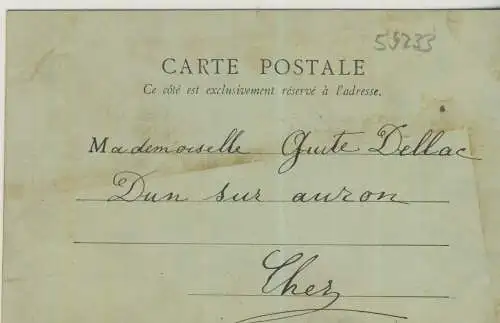 55233
CARTE POSTALE
Ce côté est exclusivement réservé à l'adresse.
Mademoiselle Guite Dellac
Dun sur auron
Cher